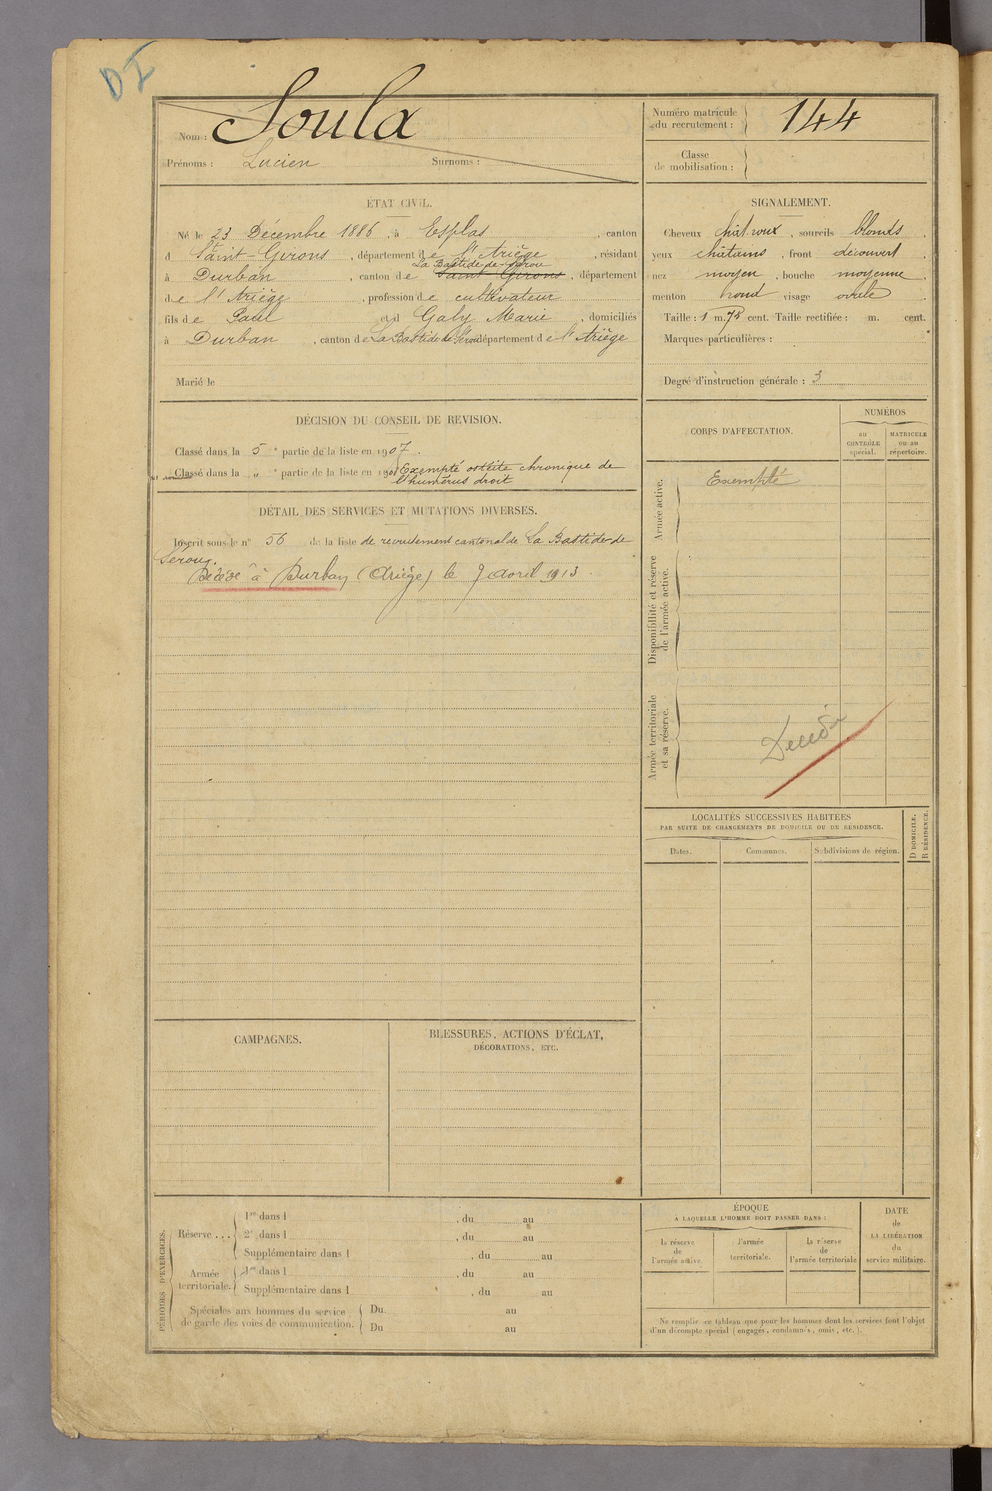 DI
Nom : Soula
Prénoms : Lucien Surnoms :
Numéro matricule du recrutement : 144
Classe de mobilisation :
ÉTAT CIVIL.
Né le 23 Décembre 1886, à Esplas, canton
d Saint-Girons, département de l'Ariège, résidant
La Bastide-de-Sérou
à Durban, canton de Saint Girons, département
de l'Ariège, profession de cultivateur
fils de Paul et d Galy Marie, domiciliés
à Durban, canton de La Bastide de Sérou département de l'Ariège
Marié le
SIGNALEMENT.
Cheveux chât. roux, sourcils blonds,
yeux châtains, front découvert,
nez moyen, bouche moyenne,
menton rond visage ovale.
Taille : 1 m. 78 cent. Taille rectifiée : m. cent.
Marques particulières :
Degré d'instruction générale : 3
DÉCISION DU CONSEIL DE REVISION.
Classé dans la 5e partie de la liste en 1907.
Classé dans la " e partie de la liste en 190 Exempté ostéite chronique de
l'humérus droit
DÉTAIL DES SERVICES ET MUTATIONS DIVERSES.
Inscrit sous le n° 56 de la liste de recrutement cantonal de La Bastide-de
Sérou.
Décédé à Durban (Ariège) le 9 avril 1913.
CORPS D'AFFECTATION.
NUMÉROS
au CONTRÔLE spécial.
MATRICULE ou au répertoire.
Armée active.
Exempté
Disponibilité et réserve de l'armée active.
Armée territoriale et sa réserve.
Décédé
LOCALITÉS SUCCESSIVES HABITÉES
PAR SUITE DE CHANGEMENTS DE DOMICILE OU DE RÉSIDENCE.
Dates. Communes. Subdivisions de région.
D DOMICILE.
R RÉSIDENCE.
CAMPAGNES.
BLESSURES, ACTIONS D'ÉCLAT,
DÉCORATIONS, ETC.
PÉRIODES D'EXERCICES.
Réserve ...
1re dans l , du au
2e dans l , du au
Supplémentaire dans l , du au
Armée territoriale.
1re dans l , du au
Supplémentaire dans l , du au
Spéciales aux hommes du service
de garde des voies de communication.
Du au
Du au
ÉPOQUE
A LAQUELLE L'HOMME DOIT PASSER DANS :
la réserve de l'armée active.
l'armée territoriale.
la réserve de l'armée territoriale
DATE
de
LA LIBÉRATION
du
service militaire.
Ne remplir ce tableau que pour les hommes dont les services font l'objet
d'un décompte spécial (engagés, condamnés, omis, etc.).